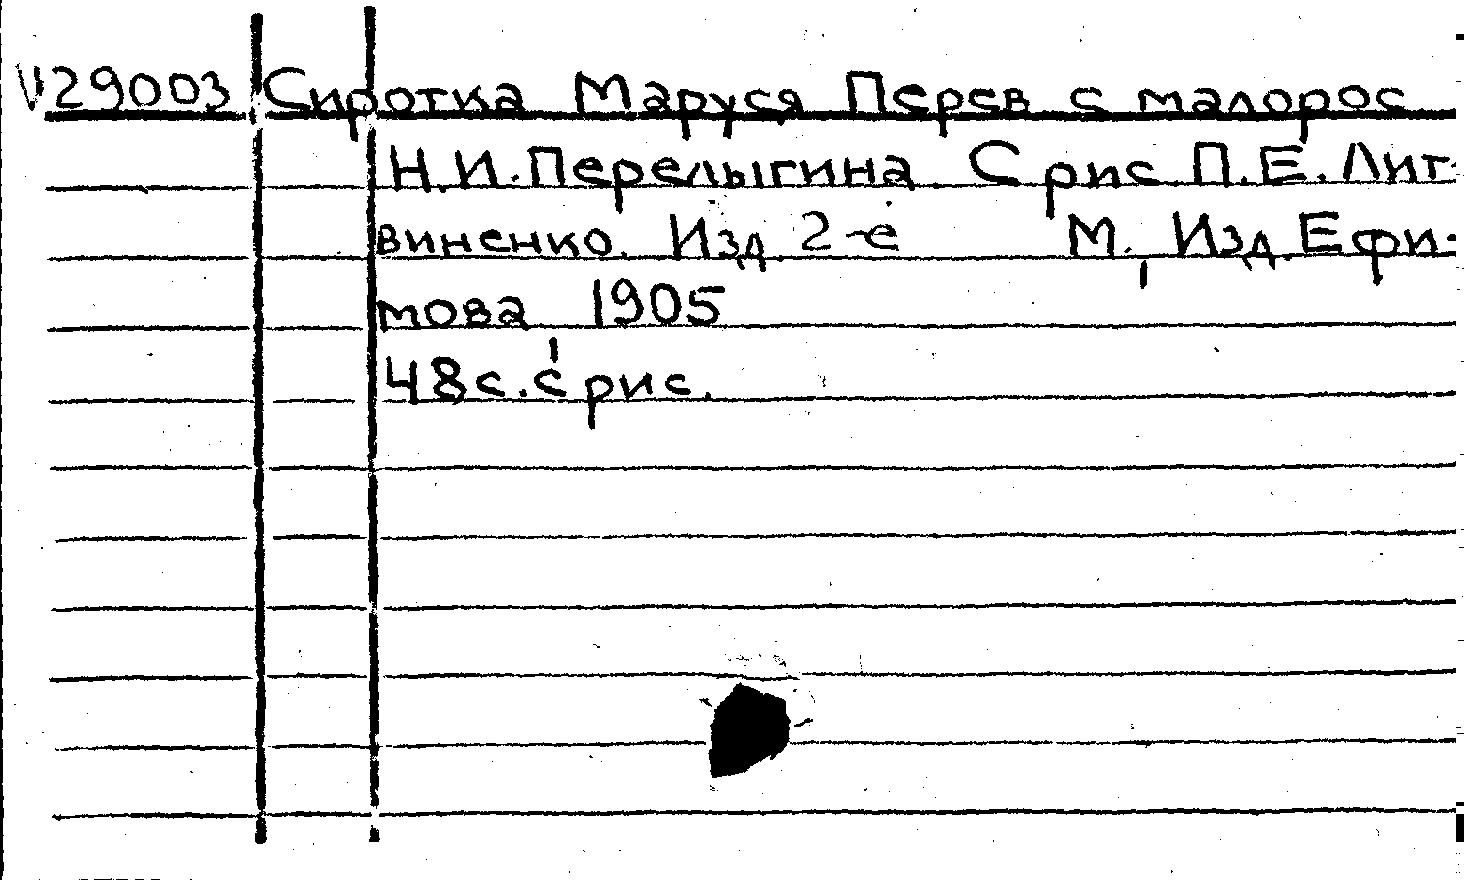 V29003 Сиротка Маруся Перев с малорос
Н.И.Перелыгина С рис П.Е.Лит-
виненко. Изд. 2-е М., Изд. Ефи-
мова 1905
48 с. с рис.